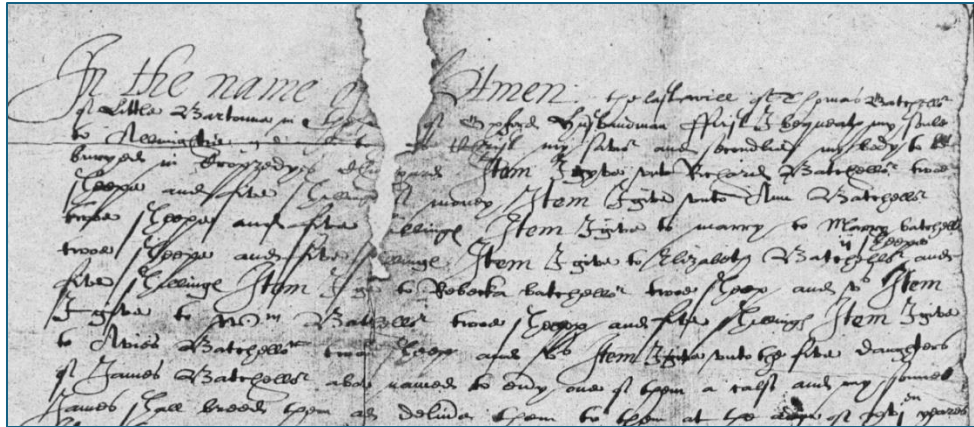 In the name of Amen. the last will of Thomas Batchellr
of Little Bartonne in of Oxford Husbandman ffirst I bequeath my soule
to Almightie and to Christ my and secondlie my body to be
buryed in Cropredye Item I gyve unto Richard Batchellr twoe
sheepe and five shillings money Item I give unto Ann Batchellr
twoe sheepe and five shillings Item I give to marry to Marry batchellr
twoe sheepe and five shillings Item I give to Elizabeth Batchellr ij sheepe and
five shillings Item I give to Rebecka batchellr twoe sheep and vs Item
I give to Wm Batchellr twoe sheepe and five shillings Item I give
to Avies Batchellr twoe sheep and vs Item I give unto the five daughters
of James Batchellr above named to evy one of them a calf and my sonne
James shall breed them and deliver them to them at the of yeares